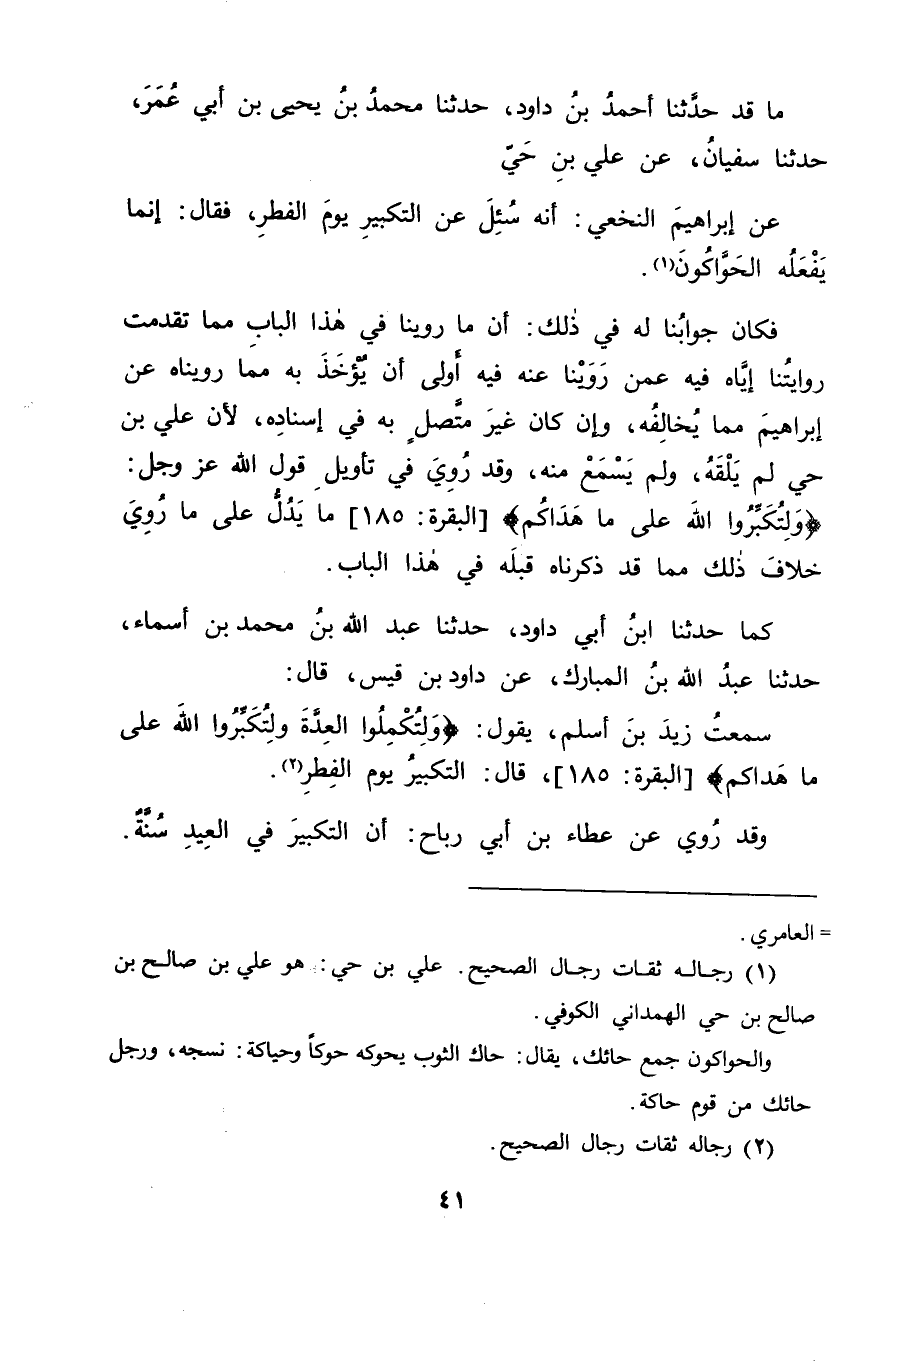 ما قد حدَّثنا أحمدُ بنُ داود، حدثنا محمدُ بنُ يحيى بن أبي عُمَرَ،
حدثنا سفيانُ، عن علي بنِ حَيّ
عن إبراهيمَ النخعي: أنه سُئِلَ عن التكبيرِ يومَ الفطرِ، فقال: إنما
يَفْعَلُه الحَوَّاكُونَ(١).
فكان جوابُنا له في ذٰلك: أن ما روينا في هٰذا البابِ مما تقدمت
روايتُنا إيَّاه فيه عمن رَوَيْنا عنه فيه أَولى أن يُؤْخَذَ به مما رويناه عن
إبراهيمَ مما يُخالِفُه، وإن كان غيرَ متَّصلٍ به في إسنادِه، لأن علي بن
حي لم يَلْقَهُ، ولم يَسْمَعْ منه، وقد رُويَ في تأويلِ قول الله عز وجل:
﴿وَلِتُكَبِّرُوا اللهَ على ما هَدَاكُم﴾ [البقرة: ١٨٥] ما يَدُلُّ على ما رُوِيَ
خلافَ ذٰلك مما قد ذكرناه قبلَه في هٰذا الباب.
كما حدثنا ابنُ أبي داود، حدثنا عبد الله بنُ محمد بن أسماء،
حدثنا عبدُ الله بنُ المبارك، عن داود بن قيس، قال:
سمعتُ زيدَ بنَ أسلم، يقول: ﴿وَلِتُكْمِلُوا العِدَّةَ ولِتُكَبِّرُوا اللهَ على
ما هَداكم﴾ [البقرة: ١٨٥]، قال: التكبيرُ يوم الفِطرِ(٢).
وقد رُوي عن عطاء بن أبي رباح: أن التكبيرَ في العِيدِ سُنَّةٌ.
= العامري.
(١) رجاله ثقات رجال الصحيح. علي بن حي: هو علي بن صالح بن
صالح بن حي الهمداني الكوفي.
والحواكون جمع حائك، يقال: حاك الثوب يحوكه حوكاً وحياكة: نسجه، ورجل
حائك من قوم حاكة.
(٢) رجاله ثقات رجال الصحيح.
٤١